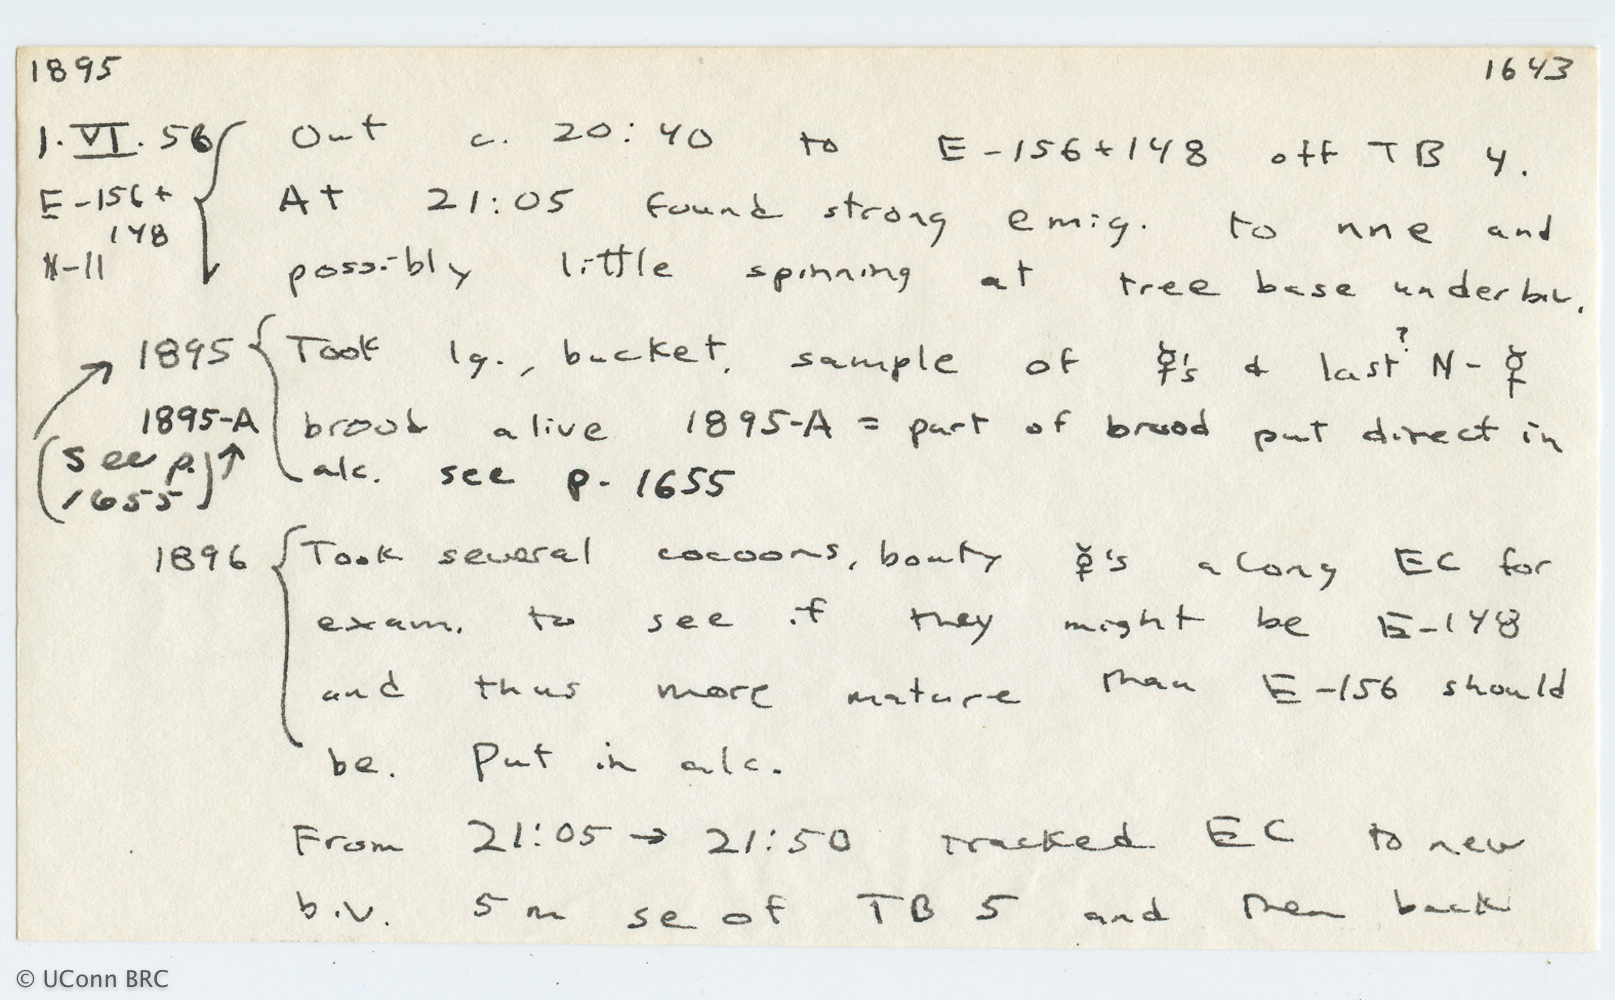 1895 1643
1. VI. 56 Out c. 20:40 to E-156+148 off TB 4.
E-156+ At 21:05 found strong emig. to nne and
148
N-11 possibly little spinning at tree base under biv.
1895 Took lg., bucket, sample of ☿'s & last? N-☿
1895-A brood alive 1895-A = part of brood put direct in
(see p. 1655) alc. see p. 1655
1896 Took several cocoons, booty ☿'s along EC for
exam. to see if they might be E-148
and thus more mature than E-156 should
be. Put in alc.
From 21:05 → 21:50 tracked EC to new
biv. 5 m se of TB 5 and then back
© UConn BRC